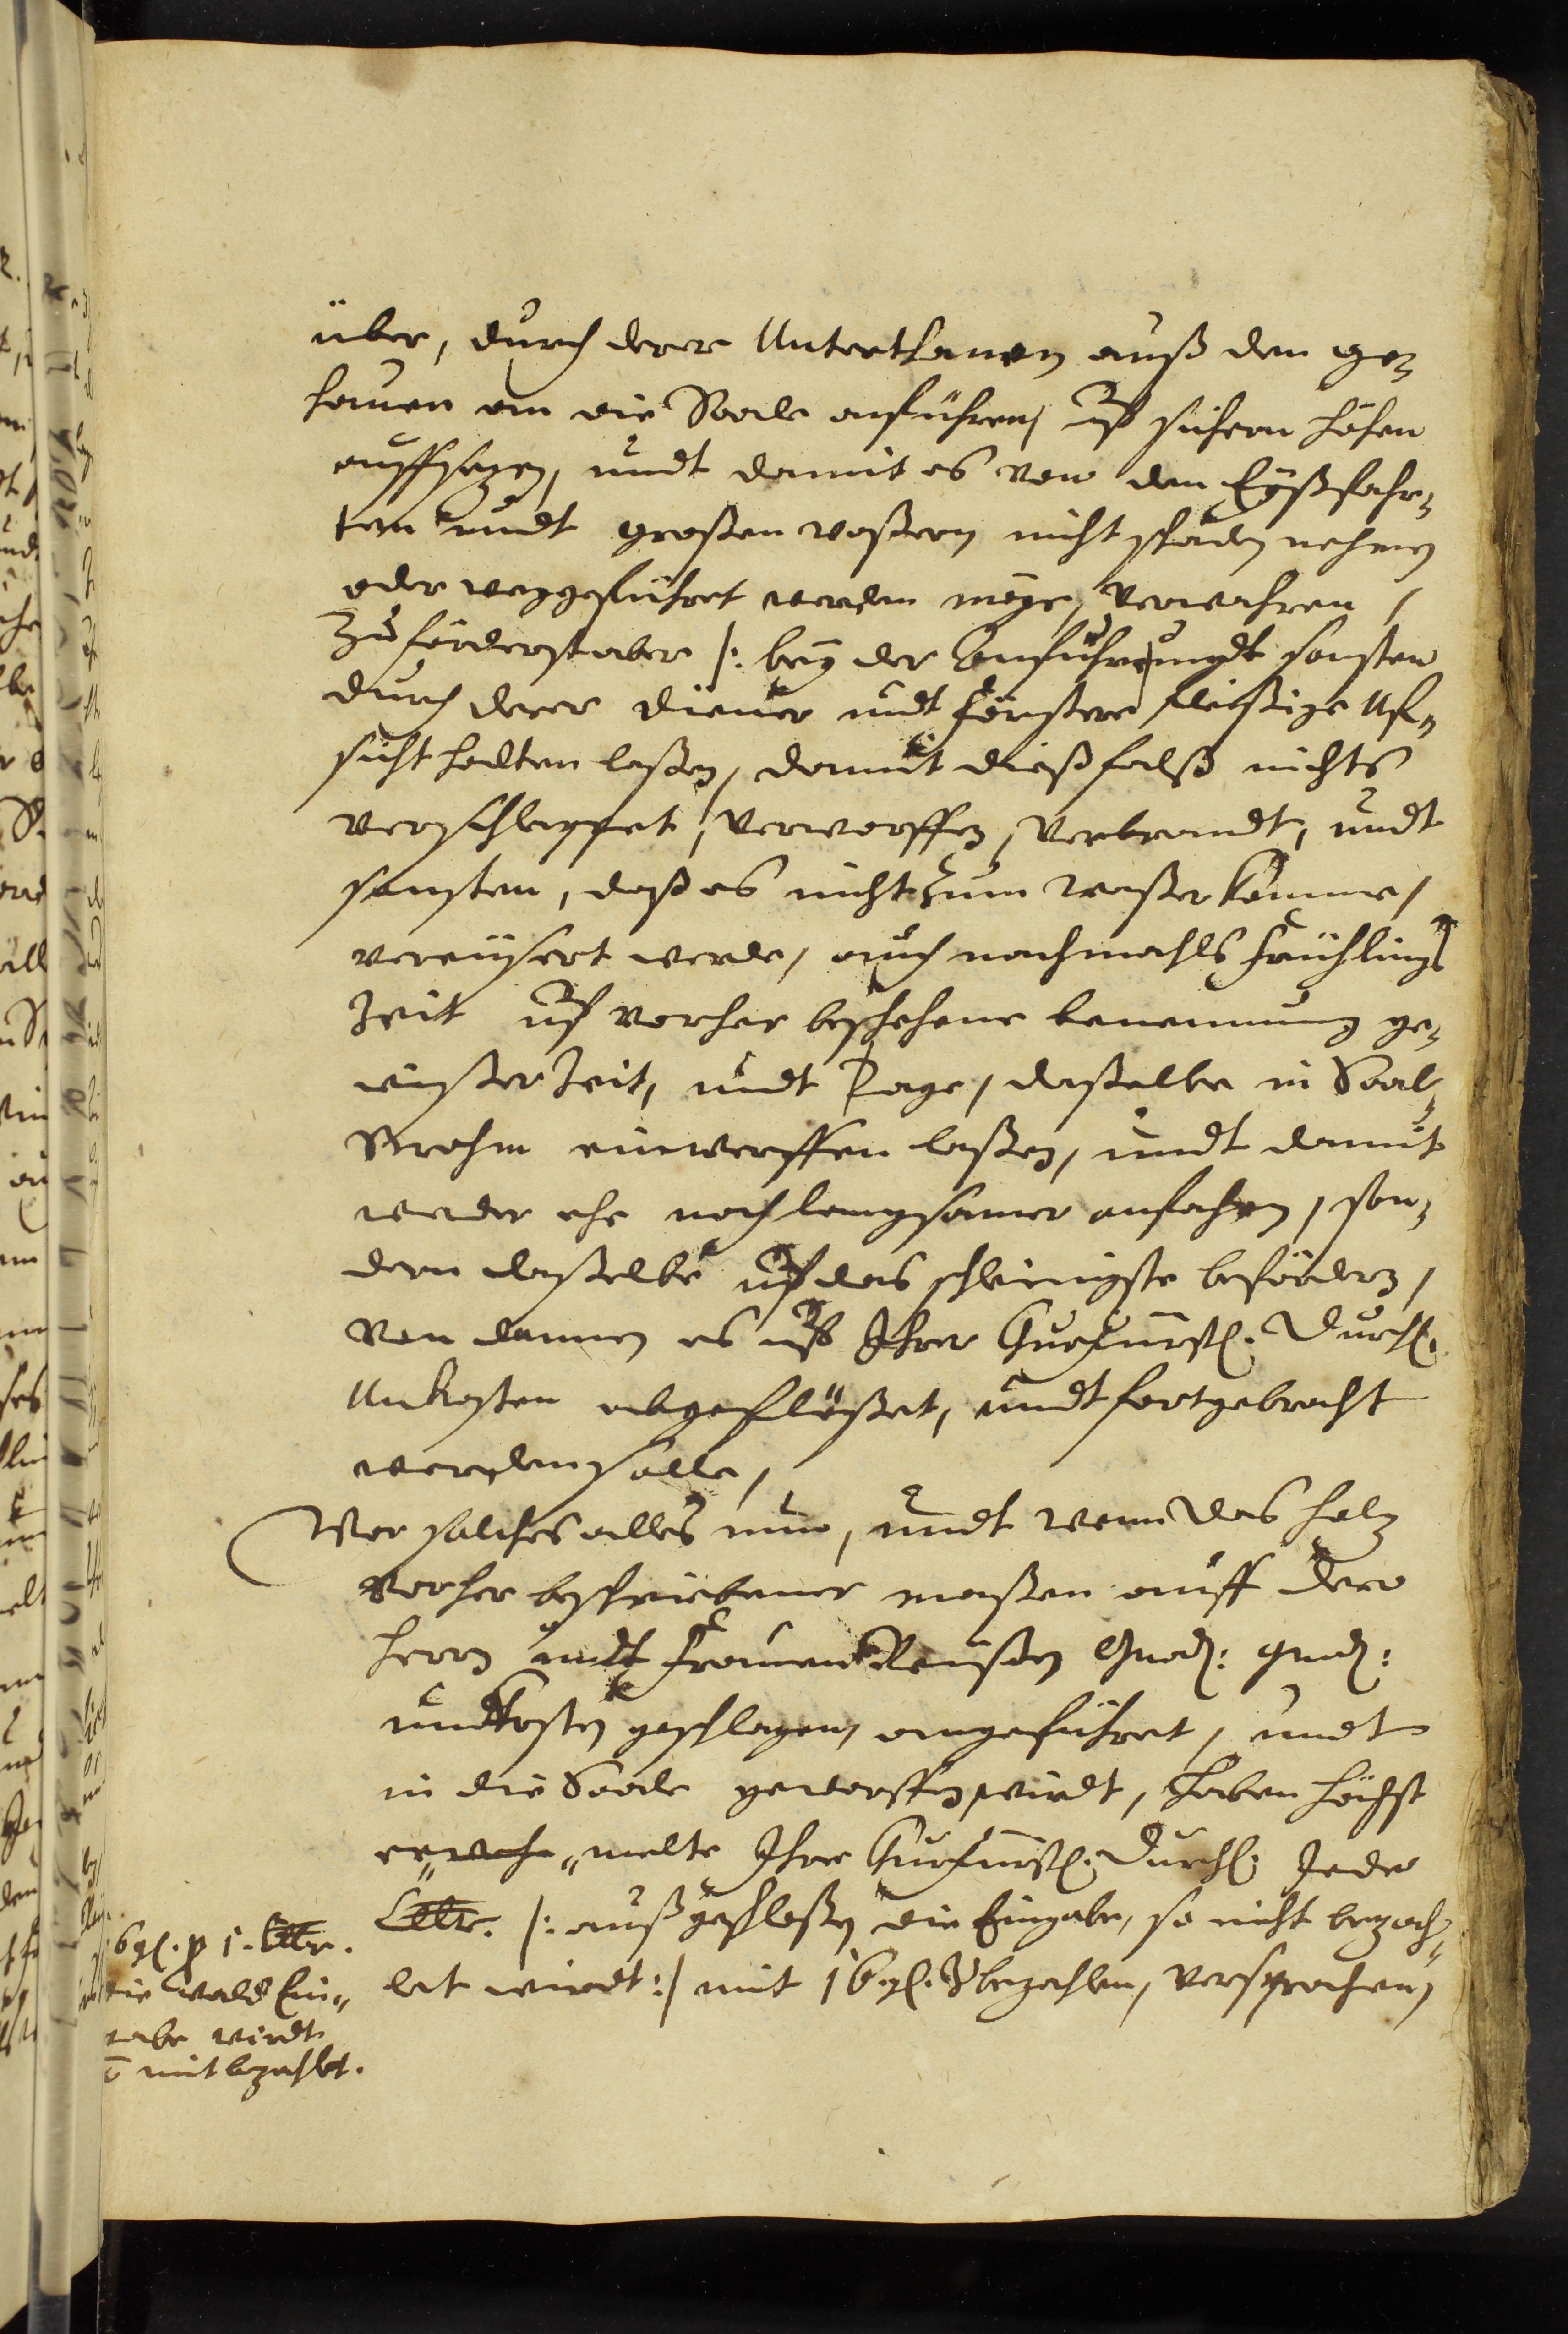 über, durch derer Unterthanen auß den ge-
hauen an die Saale anführen, uf sichern höhen
auffsezen, undt damit es von den Eyßfahr-
ten undt großen waßern nicht schaden nehmen
oder weggeführet werden möge, verwahren,
Zuförderst aber /: bey der Anfuhre undt sonsten
durch derer diener undt förstere fleißige Uf-
sicht halten laßen, damit dießfalß nichts
verschleppet, verworffen, verbrandt, undt
sonsten, daß es nicht zum waßer komme,
vereußert werde, auch nachmahls frühlings
Zeit uf vorher beschehene benennung ge-
wißer Zeit, undt Tage, daßelbe in Saal-
Strohm einwerffen laßen, undt damit
weder ehe noch langsamer anfahen, son-
dern daßelbe uf das schleinigste befördern,
von dannen es uf Ihrer Churfürstl. Durchl.
Unkosten abgeflößet, undt fortgebracht
werden solle,
Vor solches alles nun, undt wenn das holz
vorher beschriebener maßen auff dero
herrn undt frauen Reußen Gnad: Gnad:
undkosten geschlagen, angeführet, undt
in die Saale geworffen wirdt, haben höchst
er„ „melte Ihre Churfürstl. Durchl. Jede
Clftr. /: außgeschloßen die Eingabe, so nicht bezah-
let wirdt :/ mit 16 gl. zu bezahlen, versprochen,
16 gl. p 1. Clftr.
die Wald Ein„
gabe wirdt
mit bezahlt.